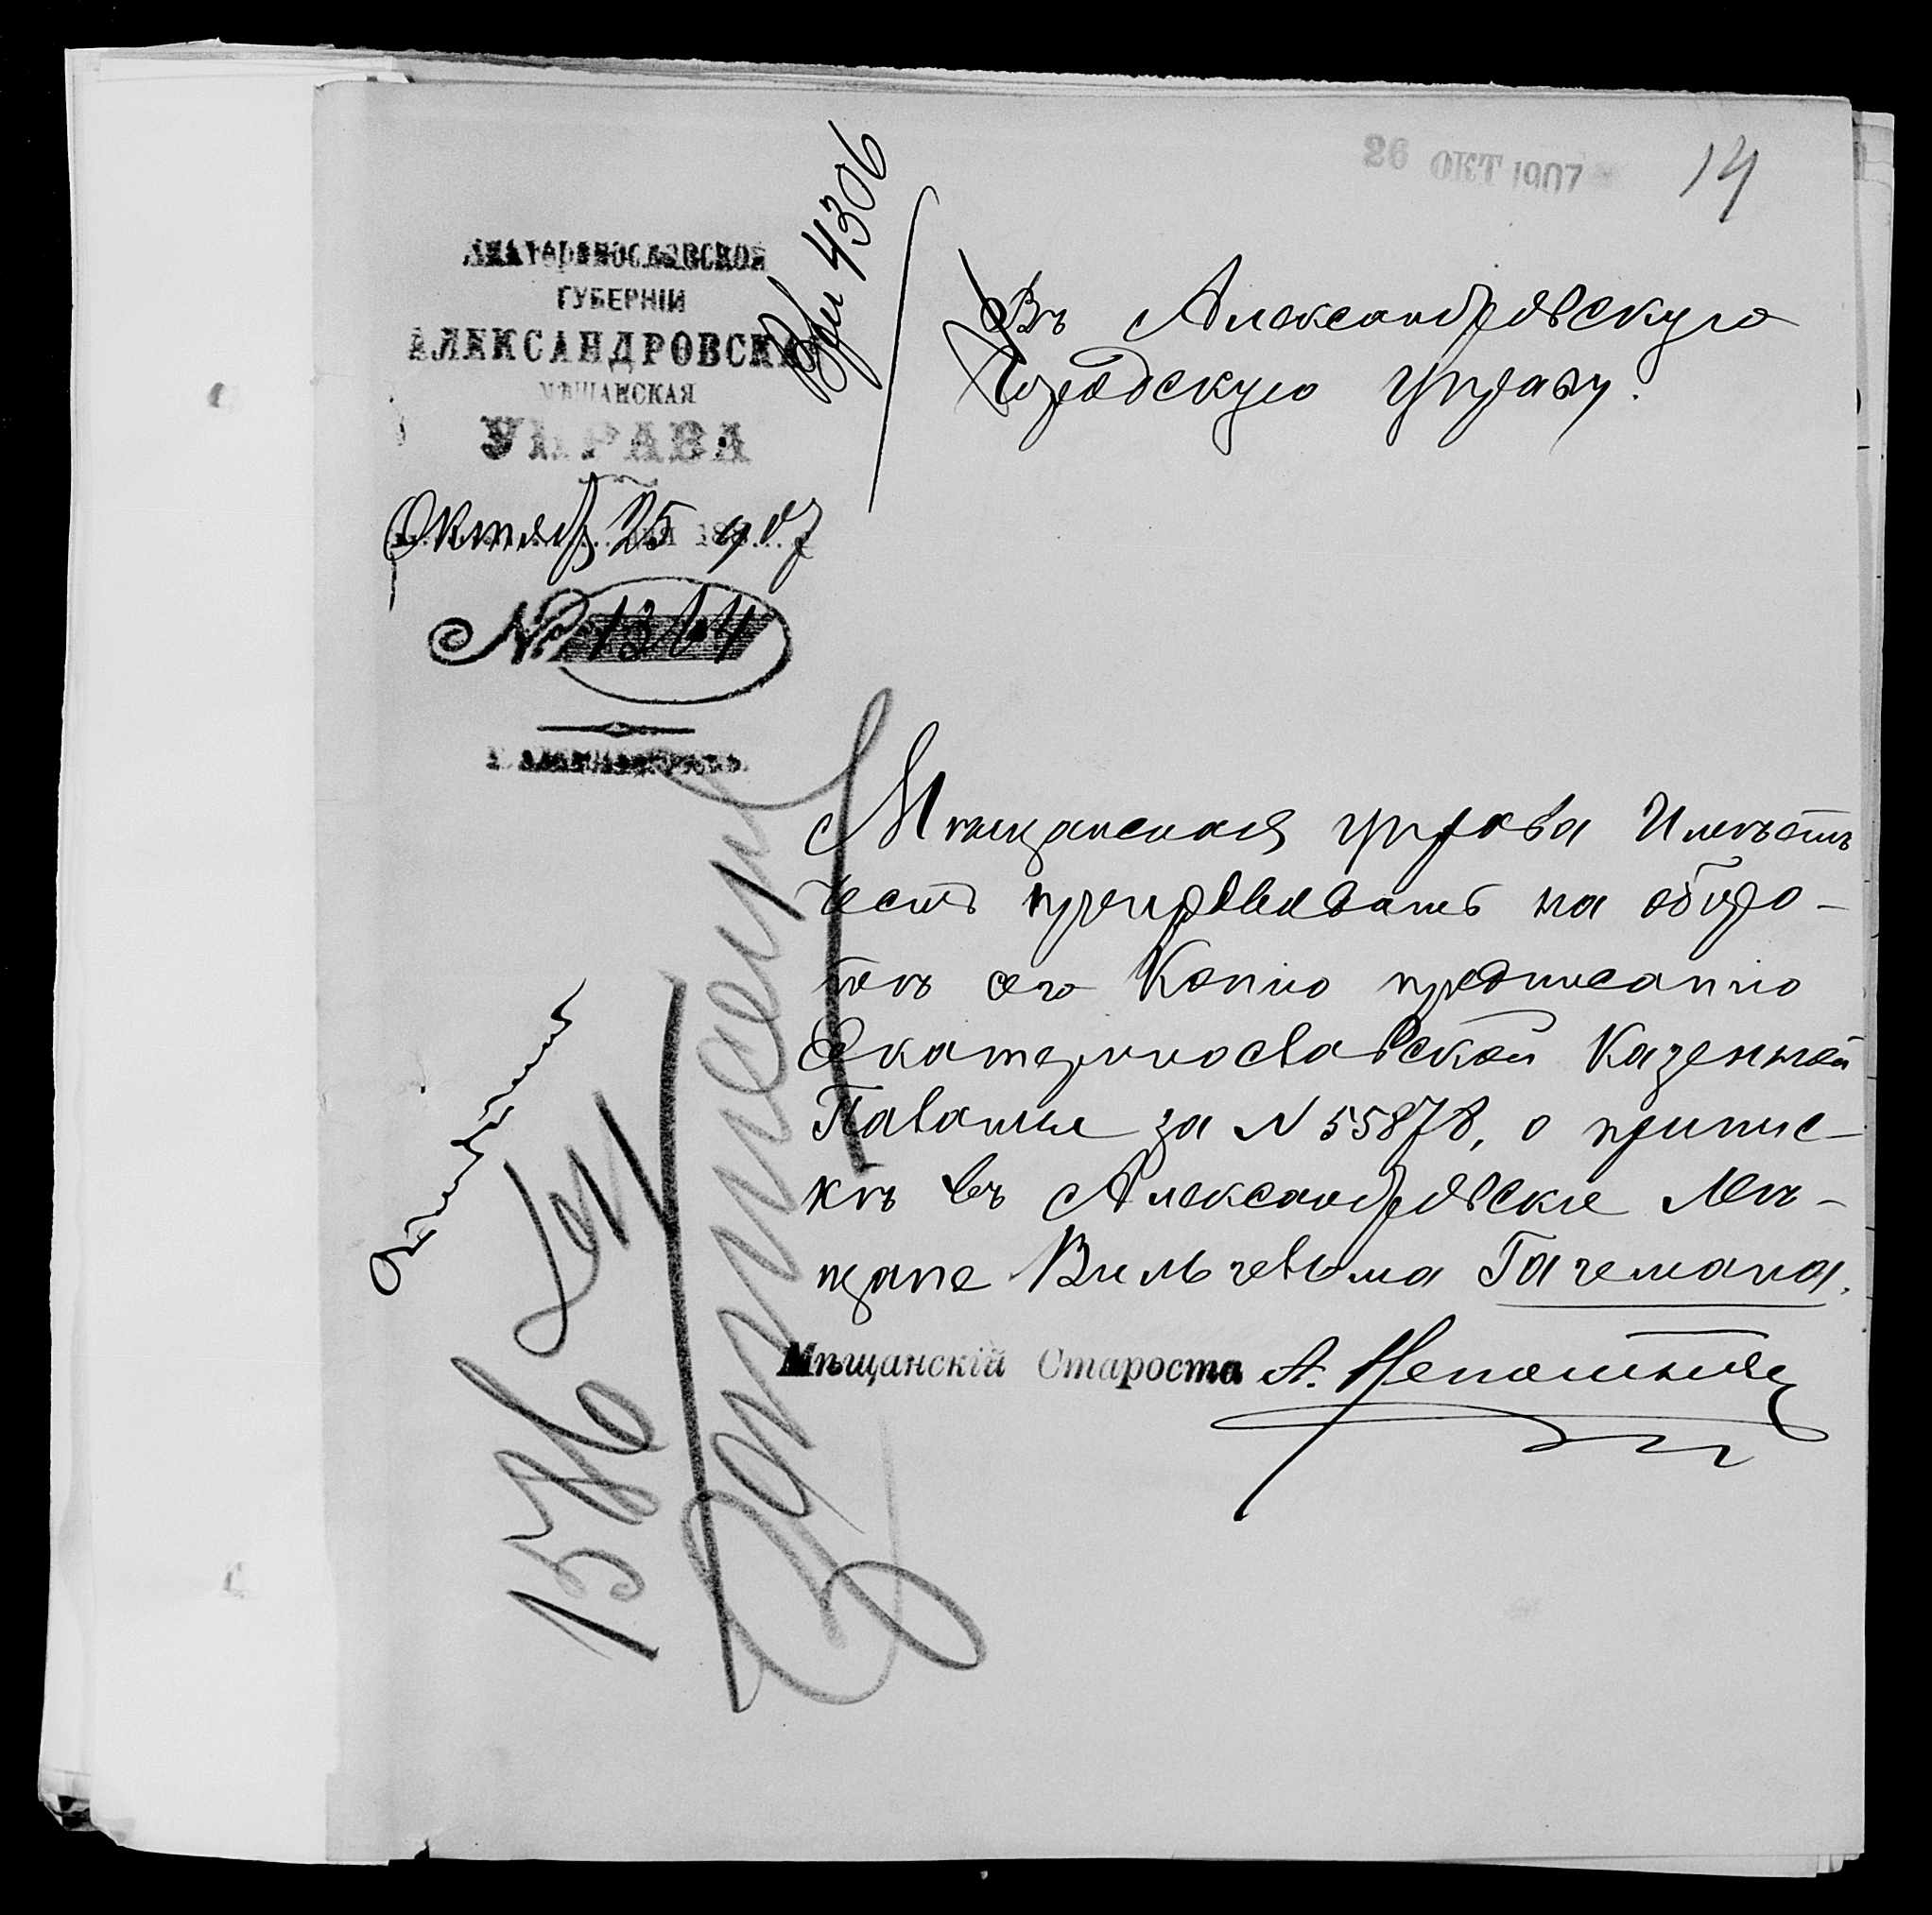 26 ОКТ 1907
14
Вхи 4306
ЕКАТЕРИНОСЛАВСКОЙ
ГУБЕРНІИ
АЛЕКСАНДРОВСКАЯ
МѢЩАНСКАЯ
УПРАВА
Октяб 25 907
№
Въ Александровскую
Городскую Управу.
Мѣщанская управа Имѣетъ
честь препровождать на оборо-
тѣ сего Копію предписанію
Екатеринославской Казенной
Палаты за N 55878, о припис-
кѣ въ Александровскіе Мѣ-
щане Вильгельма Гагемана.
Мѣщанскій Староста А. Непошивай
1576